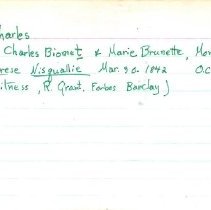 Charles
Charles Biornet & Marie Brunette, Mon
rese Nisquallie Mar. 30. 1842 O.C
itness, R. Grant, Forbes Barclay)